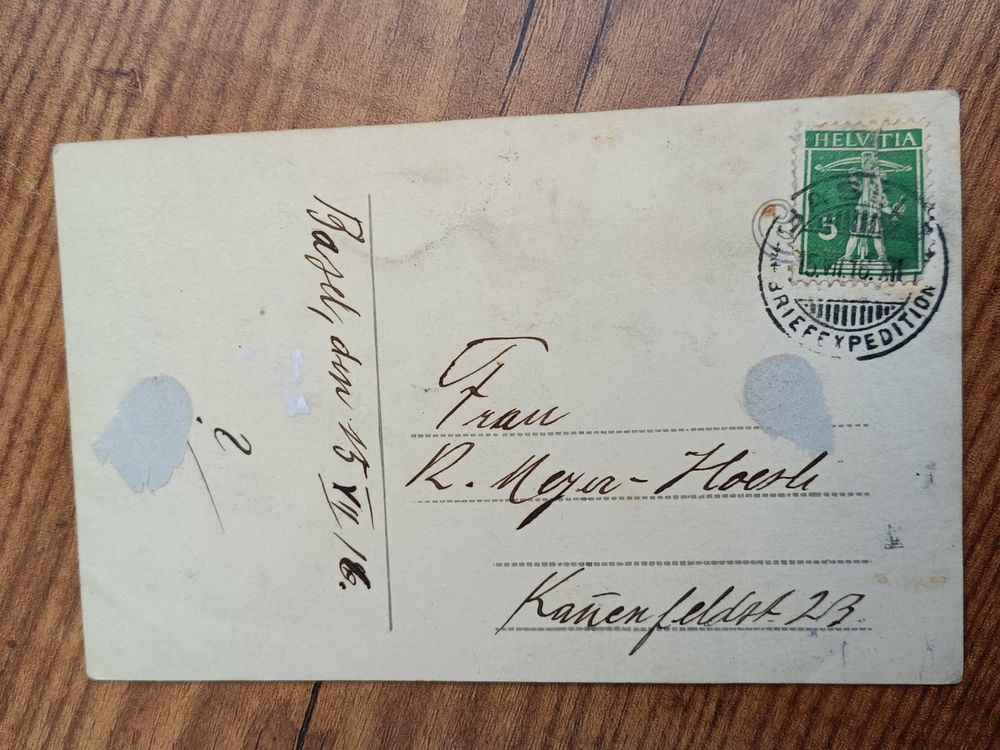 HELVETIA
5
BRIEFEXPEDITION
Basel, den 15 VII/16.
?
Frau
R. Meyer-Hoesli
Kan̄enfeldst. 23.